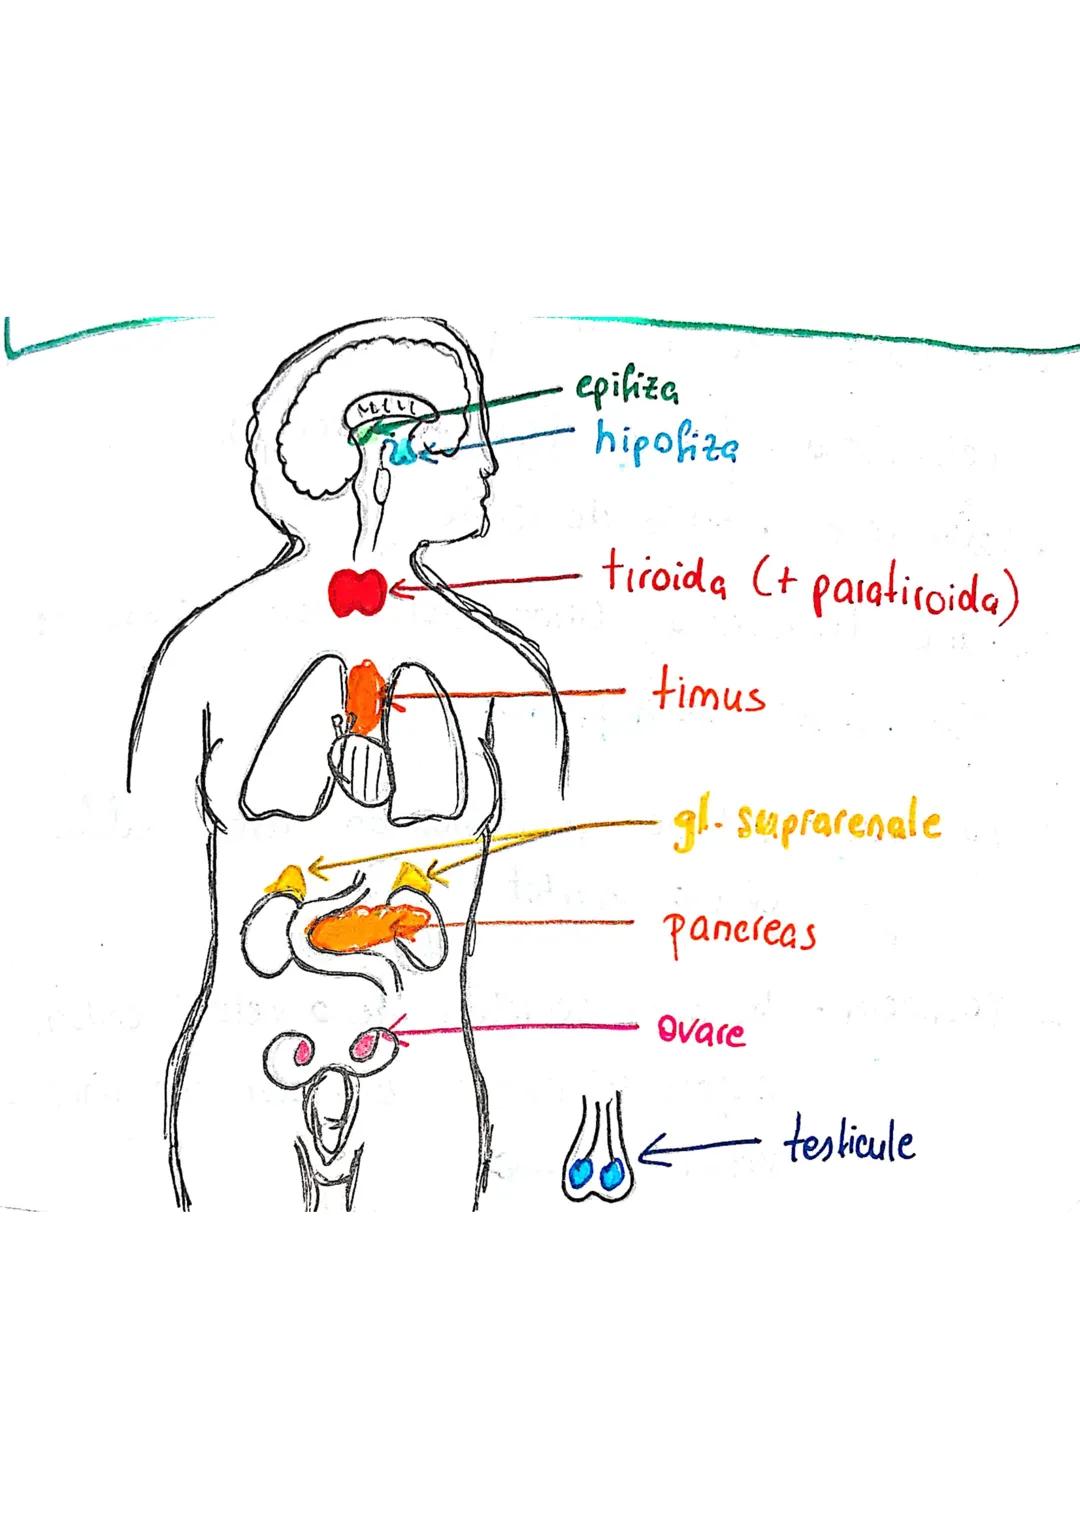 epifiza
hipofiza
tiroida (+ paratiroida)
timus
gl. suprarenale
pancreas
ovare
testicule